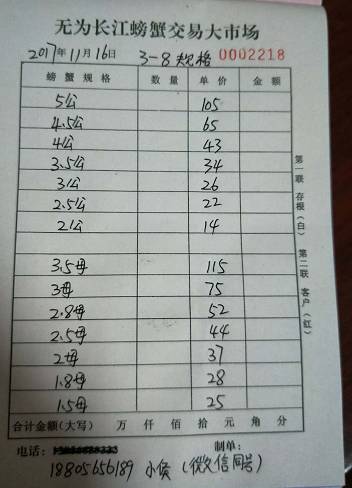 无为长江螃蟹交易大市场
2017年11月16日 3-8规格 0002218
螃蟹规格 数量 单价 金额
5公 105
4.5公 65
4公 43
3.5公 34
3公 26
2.5公 22
2公 14
3.5母 115
3母 75
2.8母 52
2.5母 44
2母 37
1.8母 28
1.5母 25
合计金额(大写) 万 仟 佰 拾 元 角 分
电话: 制单:
18805656189 小侯 (微信同号)
第一联 存根(白) 第二联 客户(红)